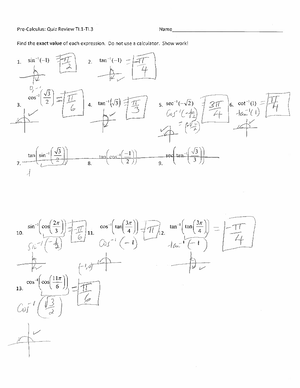 Pre-Calculus: Quiz Review TI.1-TI.3 Name
Find the exact value of each expression. Do not use a calculator. Show work!
1. sin⁻¹(-1) = -π/2 2. tan⁻¹(-1) = -π/4
3. cos⁻¹(√3/2) = π/6 4. tan⁻¹(√3) = π/3 5. sec⁻¹(-√2) = 3π/4 6. cot⁻¹(1) = π/4
cos⁻¹(-1/√2) tan⁻¹(1)
= -√2/2
7. tan(sin⁻¹(√3/2)) 8. 9.
10. sin⁻¹(cos(2π/3)) = -π/6 11. cos⁻¹(tan(3π/4)) = π 12. tan⁻¹(tan(3π/4)) = -π/4
sin⁻¹(-1/2) cos⁻¹(-1) tan⁻¹(-1)
13. cos⁻¹(cos(11π/6)) = π/6
cos⁻¹(√3/2)